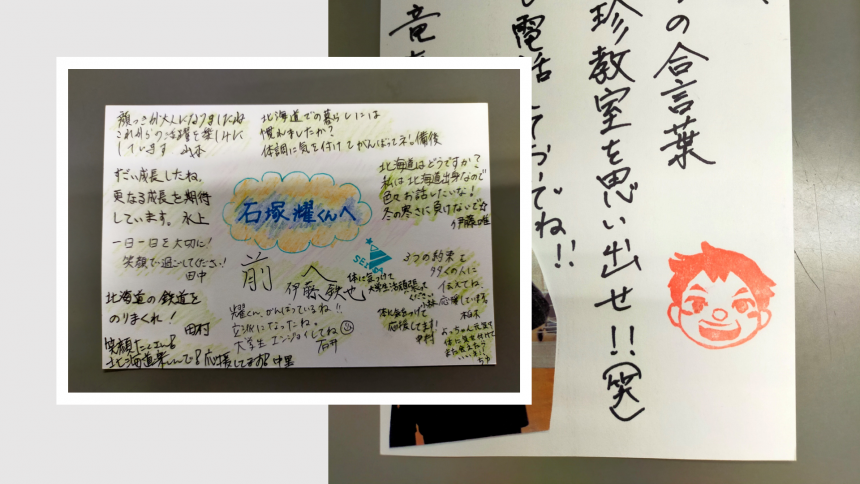 顔つきが大人になりましたね
これからの活躍を楽しみに
しています
北海道での暮らしには
慣れましたか?
体調に気を付けてがんばってネ。備後
すごい成長したね。
更なる成長を期待
しています。水上
北海道はどうですか?
私は北海道出身なので
色々お話したいな!
冬の寒さに負けないで
伊藤唯
石塚耀くんへ
一日一日を大切に!
笑顔で過ごしてください!
田中
前へ
伊藤鉄也
SEISA
体に気をつけて
大学生活頑張って
ください
3つの約束を
タタくの人に
伝えてね
応援しています
柏木
北海道の鉄道を
のりまくれ!
田村
耀くん、がんばっているね!!
立派になったね。
大学生エンジョイしてね
石井
体に気をつけて
応援してます!
中村
よっちゃん先生
体に気を付けて
また会えたら
いいな!!
笑顔たくさん
北海道楽しんで!応援してます!中里
の合言葉
珍教室を思い出せ!!(笑)
電話
でね!!
竜